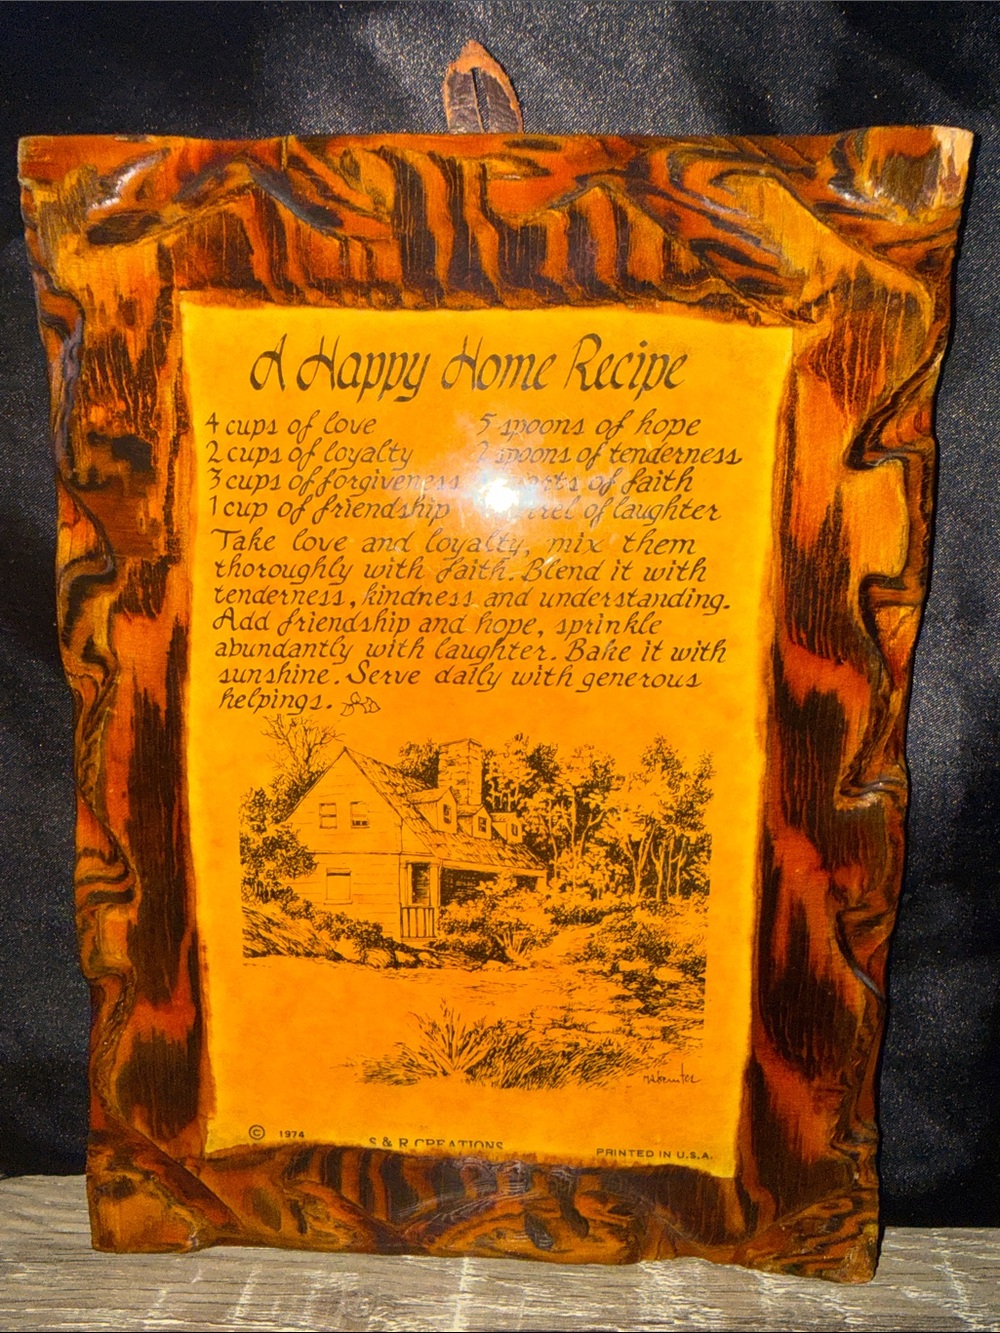 A Happy Home Recipe
4 cups of love
2 cups of loyalty
3 cups of forgiveness
1 cup of friendship
5 spoons of hope
2 spoons of tenderness
of faith
of laughter
Take love and loyalty, mix them
thoroughly with faith. Blend it with
tenderness, kindness and understanding.
Add friendship and hope, sprinkle
abundantly with laughter. Bake it with
sunshine. Serve daily with generous
helpings.
© 1974
S & R CREATIONS
PRINTED IN U.S.A.